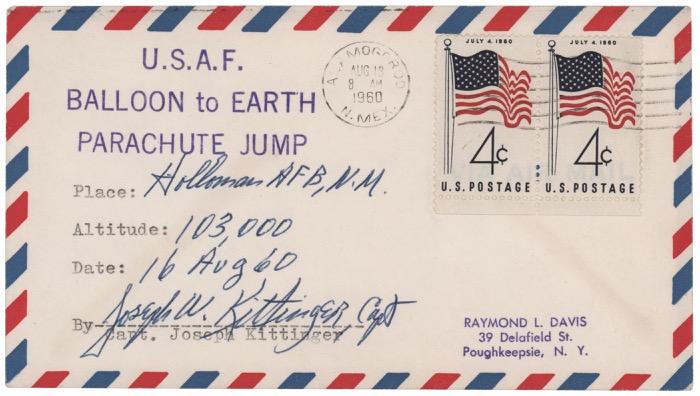 U.S.A.F.
BALLOON to EARTH
PARACHUTE JUMP
ALAMOGORDO
AUG 13
8 AM
1960
N. MEX.
JULY 4, 1960
4¢
U.S. POSTAGE
JULY 4, 1960
4¢
U.S. POSTAGE
VIA AIR MAIL
Place: Holloman AFB, N.M.
Altitude: 103,000
Date: 16 Aug 60
Joseph W. Kittinger, Capt
By
Capt. Joseph Kittinger
RAYMOND L. DAVIS
39 Delafield St.
Poughkeepsie, N. Y.